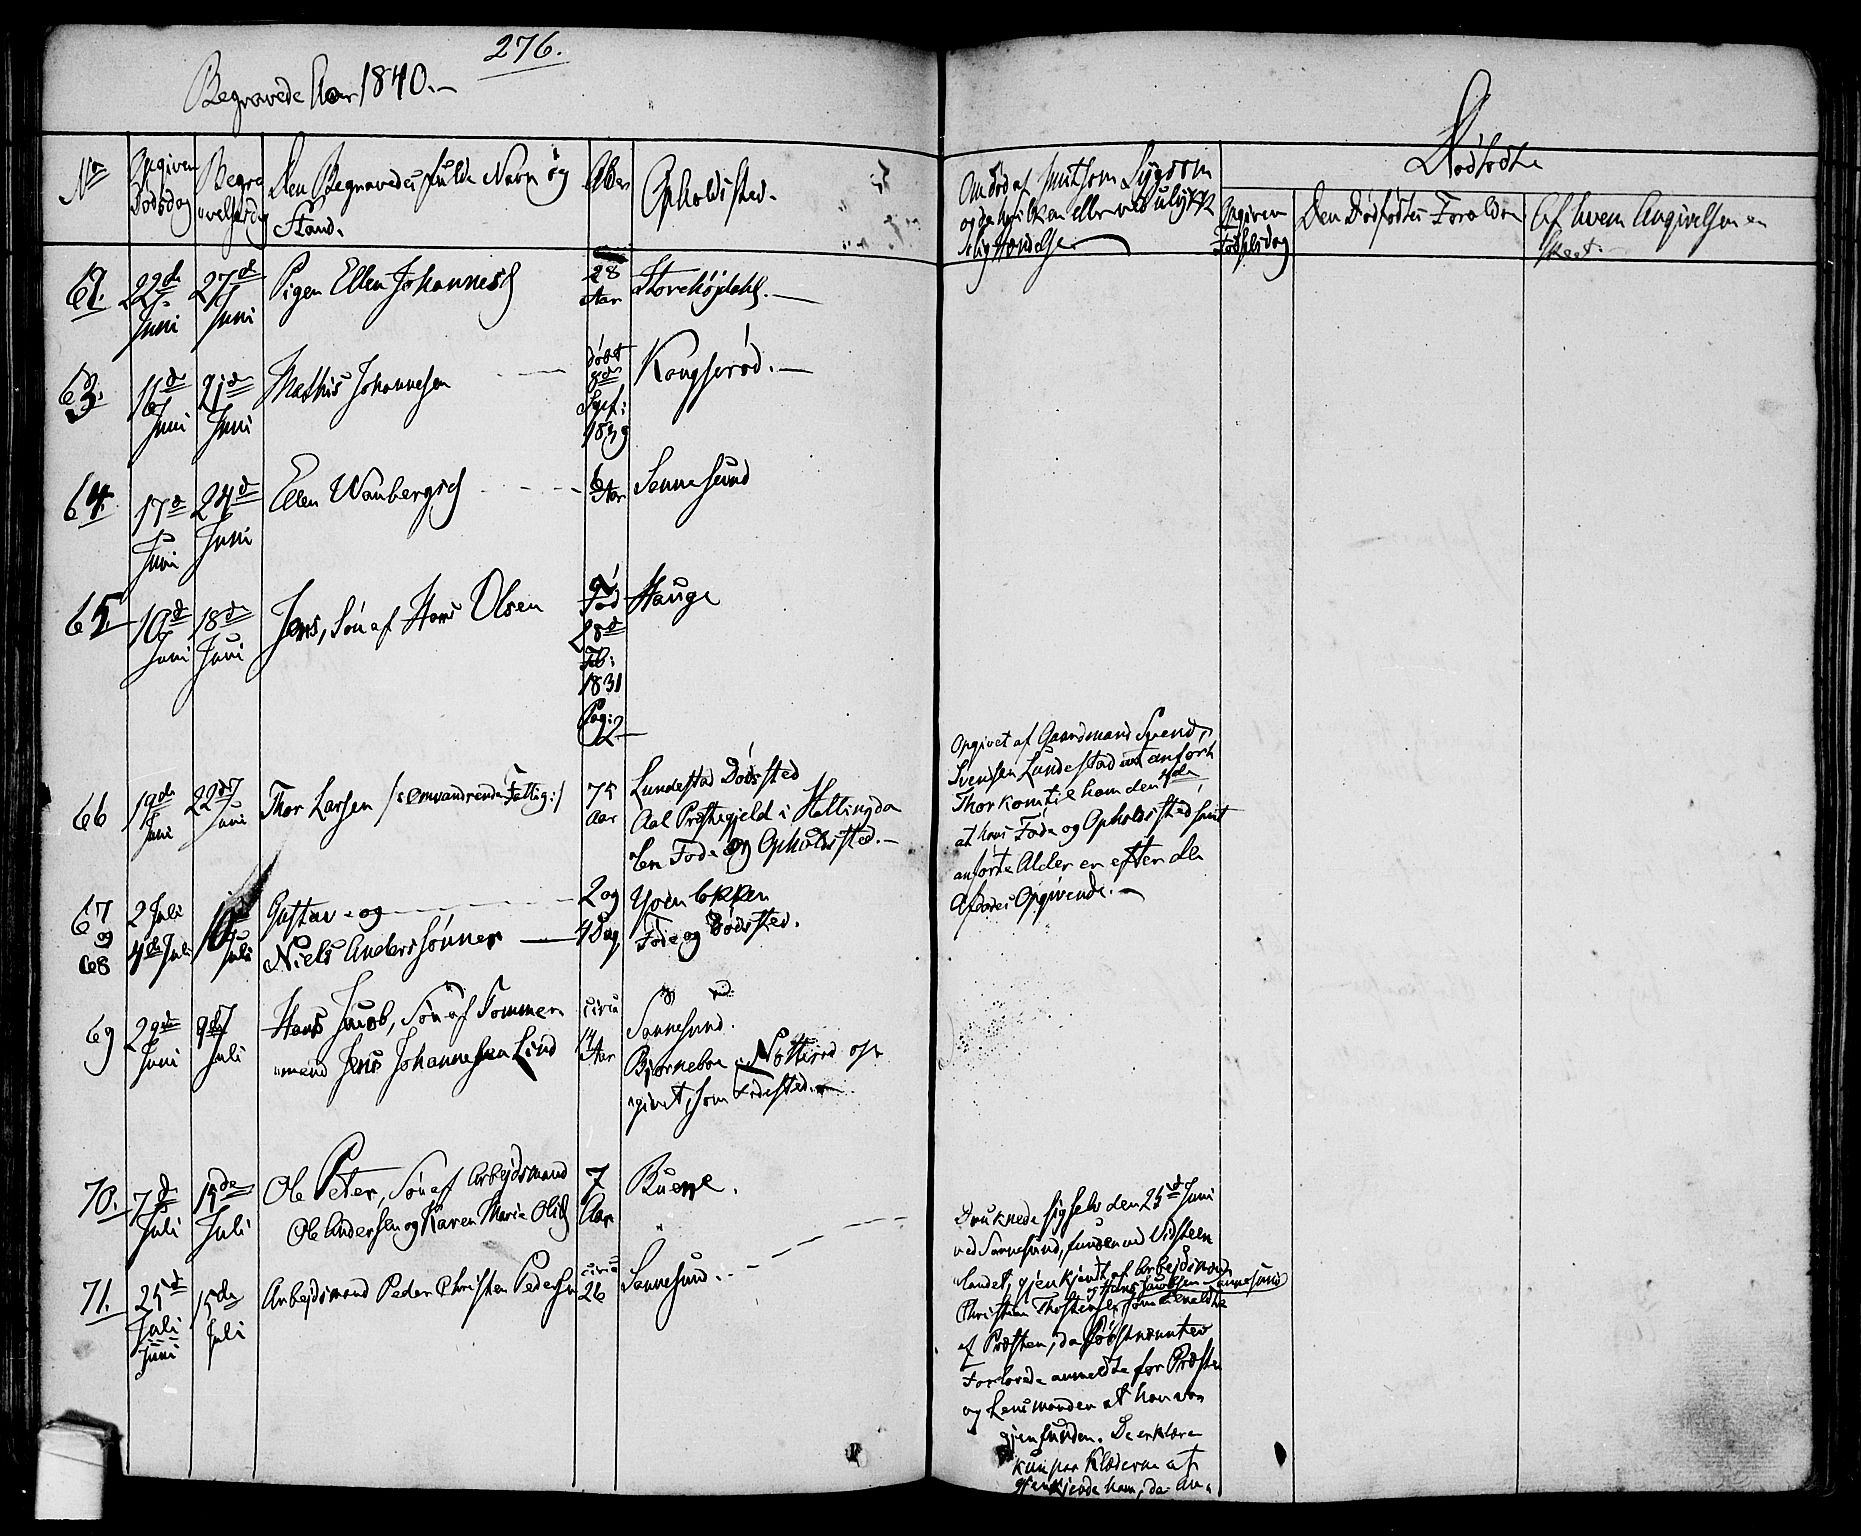 276.
Begravede Aar 1840.
No
Opgiven Dødsdag
Begravelsesdag
Den Begravedes fulde Navn og Stand.
Alder
Opholdssted.
Om død af smitsom Sygdom
og da hvilken eller ved ulykke
lig Hændelse
Dødfødte
Opgiven Fødselsdag
Den Dødfødtes Forældre
Af hvem Angivelsen er
skeet.
62. 22de Juni 27de Juni Pigen Ellen Johannesd 28 Aar
63. 16de Juni 21de Juni Mathis Johannesen døbt 8de 1839 Kongserød.
64. 17de Juni 24de Juni Ellen 6 Aar Sannesund
65 10de Juni 18de Juni Jens, Søn af Hans Olsen Fød 28de Feb: 1831 Pag: 2 Hauge
66 19de Juni 22de Juni Thor Larsen /: omvandrende Fattig :/ 75 Aar Lundestad Dødssted
Aal Præstegjeld i Hallingda
len Føde og Opholdssted.
Opgivet af Gaardmand Svend
Svendsen Lundestad anført
Thor kom til ham den
at hans Føde og Opholdssted samt
anførte Alder er efter den
Afdødes Opgivende.
67 og 68 2 Juli 4de Juli 10de Juli Gustav og
Niels Anderssønner 2 og 4 Dag
Føde og Dødssted.
69 29de Juni 9de Juli Hans Jacob, Søn af Tømmer
mand Jens Johannesen Lind circa 14 Aar Sannesund.
Bjørnebo i Nøtterø op
givet, som Fødested.
70. 7de Juli 15de Juli Ole Peter, Søn af Arbejdsmand
Ole Andersen og Karen Marie Olsd 7 Aar
71. 25de Juli Juni 15de Juli Arbejdsmand Peder Christen Pedersen circa 26 Sannesund.
Druknede sig selv den 25de Juni
ved Sannesund, funden ved Vidsteen
landet, gjenkjendt af Arbejdsmand
og Hans Jacobsen Sannesund
Christian Thostensen, som
af Præsten, da Sidstnævntes
Forlovede anmeldte for Præsten
og Lensmanden at han var
gjenfunden. De erklære
kun paa Klæderne at
gjenkjende ham, da An-